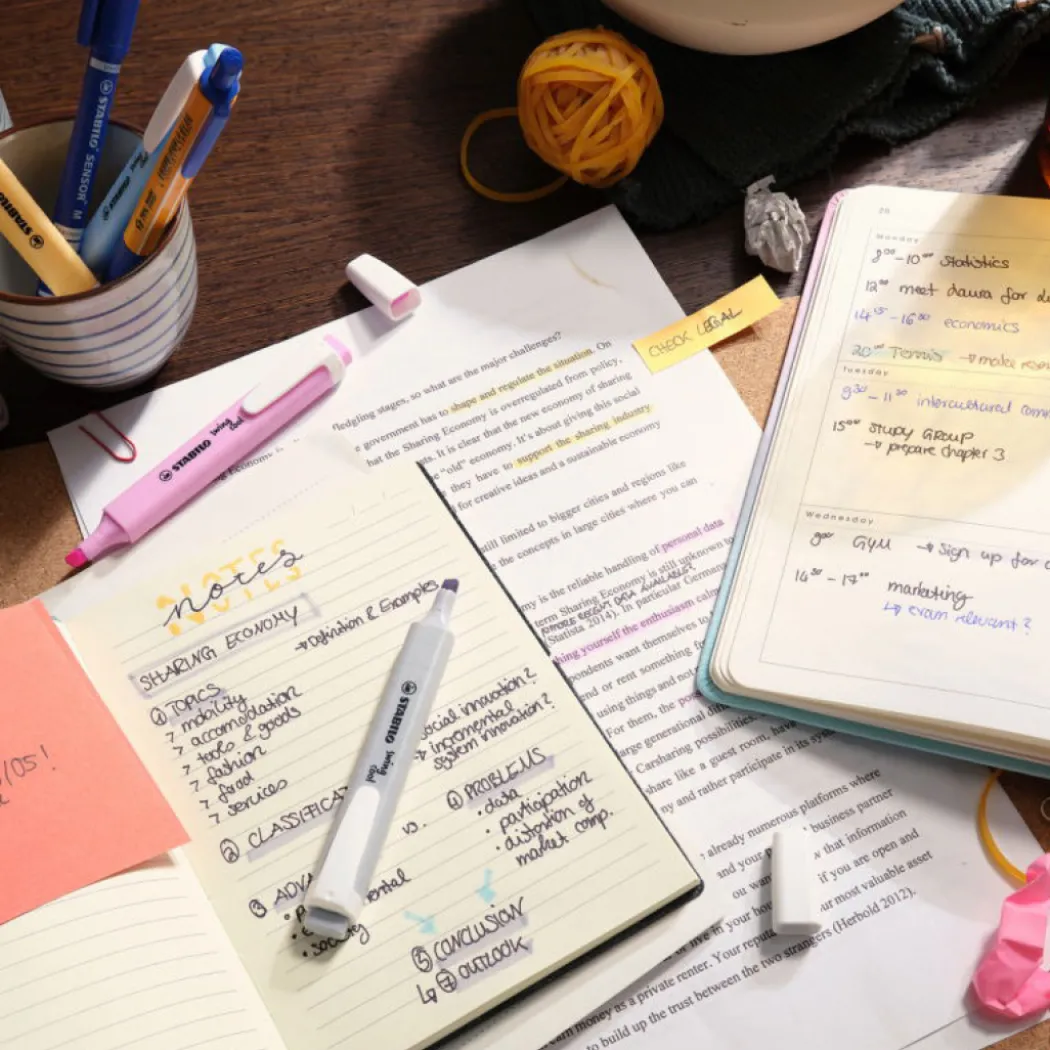 STABILO SENSOR M
STABILO
STABILO swing cool
CHECK LEGAL
so what are the major challenges?
government has to shape and regulate the situation. On
hat the Sharing Economy is overregulated from policy,
It is clear that the new economy of sharing
"old" economy. It's about giving this social
they have to support the sharing industry
for creative ideas and a sustainable economy
still limited to bigger cities and regions like
the concepts in large cities where you can
is the reliable handling of personal data
term Sharing Economy is still unknown to
MORE RECENT DATA AVAILABLE?
(Statista 2014). In particular Germans
yourself the enthusiasm
want themselves to
or rent something
using things and not
For them, the
large generational
Carsharing possibilities.
share like a guest room, have
ny and rather participate in its
already numerous platforms where
and your business partner
that information
if you are open and
your most valuable asset
or live in your
as a private renter. Your (Herbold 2012).
money
to build up the trust between the two strangers
NOTES
notes
SHARING ECONOMY
→ Definition & Examples
① TOPICS
> mobility
> accomodation
> tools & goods
> fashion
> food
> services
② CLASSIFICA
social innovation?
→ incremental
system innovation?
vs.
③ ADVA
mental
• society
④ PROBLEMS
• data
• participation
• distortion of
market comp.
⑤ CONCLUSION
OUTLOOK
/05!
Monday
8⁰⁰-10⁰⁰ statistics
12⁰⁰ meet Laura for
14¹⁵-16⁰⁰ economics
20⁰⁰ Tennis → make
Tuesday
9³⁰-11³⁰ intercultural
15⁰⁰ STUDY GROUP
→ prepare chapter 3
Wednesday
9⁰⁰ GYM → sign up for
14³⁰-17⁰⁰ marketing
↳ exam relevant?